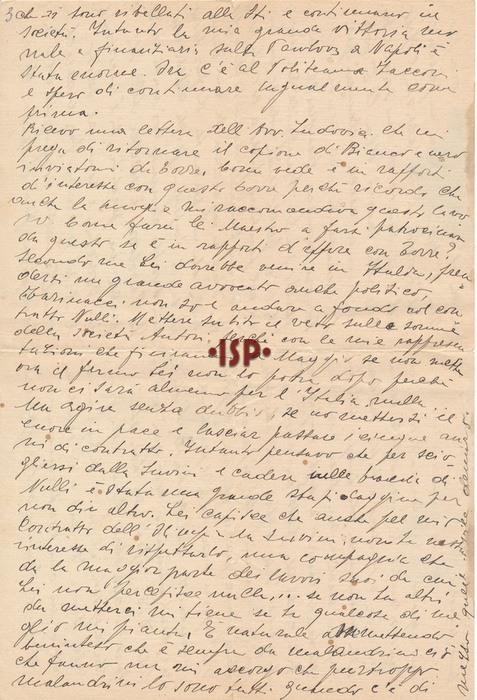 3 che si sono ribellati alla Sti e continuano in
società. Intanto la mia grande vittoria mo
rale e finanziaria sulla Pawlova a Napoli è
stata enorme. Ora c'è al Politeama Zacconi
e spero di continuare ugualmente come
prima.
Ricevo una lettera dell'Avv. che mi
prega di ritornare il copione di Bianco e nero
inviatomi da Come vede è in rapporti
d'interesse con questo perché ricordo che
anche la mi raccomandava questo lavo
ro. Come farà le Maestro a farsi patrocinare
da questo se è in rapporti d'affare con
secondo me Lei dovrebbe venire in Italia, pren
dersi un grande avvocato anche politico,
Farinacci. non so e andare a fondo col con
tratto Nulli. Mettere subito il veto sulle somme
della Società Autori. con le mie rappresen
tazioni che Maggio se non mette
ora il fermo Lei non lo potrà dopo perché
non ci sarà almeno per l'Italia, nulla.
Ma agire senza dubbio, se no mettersi il
cuore in pace e lasciar passare i cinque an
ni di contratto. Intanto pensavo che per scio
gliersi dalla Suvini e cadere nelle braccia di
Nulli è stata una grande stupidaggine per
non dir altro. Lei capisce che anche pel mio
contratto dell' la Suvini, non ha nessun
interesse di rispettarlo, una compagnia che
dà la maggior parte dei lavori suoi da cui
Lei non percepisce nulla,... se non ha altri
da metterci mi tiene se ha qualcosa di me
glio mi pianta. È naturale ammettendo
beninteso che è sempre da malandrini ciò
che fanno ma mi accorgo che purtroppo
malandrini lo sono tutti quando c'è di
mezzo quel danaro.
·ISP·